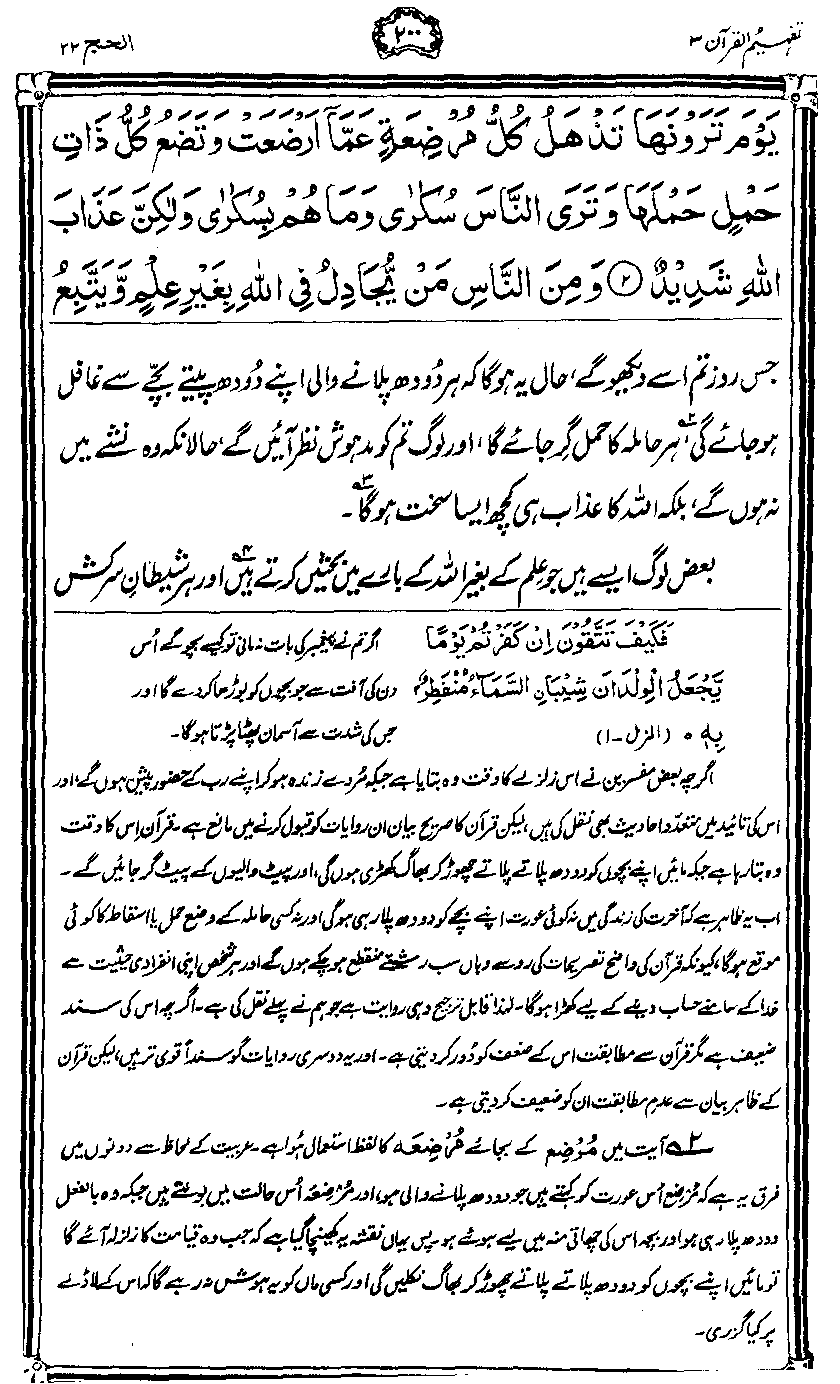 تفہیم القرآن ۳
۲۰۰
الحج ۲۲
يَوْمَ تَرَوْنَهَا تَذْهَلُ كُلُّ مُرْضِعَةٍ عَمَّآ اَرْضَعَتْ وَتَضَعُ كُلُّ ذَاتِ
حَمْلٍ حَمْلَهَا وَتَرَى النَّاسَ سُكَارٰى وَمَا هُمْ بِسُكَارٰى وَلٰكِنَّ عَذَابَ
اللّٰهِ شَدِيْدٌ ﴿۲﴾ وَمِنَ النَّاسِ مَنْ يُّجَادِلُ فِي اللّٰهِ بِغَيْرِ عِلْمٍ وَّيَتَّبِعُ
جس روز تم اسے دیکھو گے، حال یہ ہوگا کہ ہر دُودھ پلانے والی اپنے دُودھ پیتے بچّے سے غافل
ہو جائے گی،۲ ہر حاملہ کا حمل گِر جائے گا، اور لوگ تم کو مدہوش نظر آئیں گے، حالانکہ وہ نشے میں
نہ ہوں گے، بلکہ اللہ کا عذاب ہی کچھ ایسا سخت ہوگا۳۔
بعض لوگ ایسے ہیں جو عِلم کے بغیر اللہ کے بارے میں بحثیں کرتے ہیں۴ اور ہر شیطانِ سرکش
فَكَيْفَ تَتَّقُوْنَ اِنْ كَفَرْتُمْ يَوْمًا اگر تم نے پیغمبر کی بات نہ مانی تو کیسے بچو گے اُس
يَّجْعَلُ الْوِلْدَانَ شِيْبَانِ السَّمَآءُ مُنْفَطِرٌۢ دن کی آفت سے جو بچوں کو بوڑھا کر دے گا اور
بِهٖ ۰ (المزمل-۱) جس کی شدت سے آسمان پھٹا پڑتا ہوگا۔
اگرچہ بعض مفسرین نے اس زلزلے کا وقت وہ بتایا ہے جبکہ مُردے زندہ ہو کر اپنے رب کے حضور پیش ہوں گے، اور
اس کی تائید میں متعدّد احادیث بھی نقل کی ہیں، لیکن قرآن کا صریح بیان ان روایات کو قبول کرنے میں مانع ہے۔ قرآن اِس کا وقت
وہ بتا رہا ہے جبکہ مائیں اپنے بچوں کو دودھ پلاتے پلاتے چھوڑ کر بھاگ کھڑی ہوں گی، اور پیٹ والیوں کے پیٹ گر جائیں گے۔
اب یہ ظاہر ہے کہ آخرت کی زندگی میں نہ کوئی عورت اپنے بچے کو دودھ پلا رہی ہوگی اور نہ کسی حاملہ کے وضع حمل یا اسقاط کا کوئی
موقع ہوگا، کیونکہ قرآن کی واضح تصریحات کی رو سے وہاں سب رشتے منقطع ہو چکے ہوں گے اور ہر شخص اپنی انفرادی حیثیت سے
خدا کے سامنے حساب دینے کے لیے کھڑا ہوگا۔ لہٰذا قابل ترجیح وہی روایت ہے جو ہم نے پہلے نقل کی ہے۔ اگرچہ اس کی سند
ضعیف ہے مگر قرآن سے مطابقت اس کے ضعف کو دُور کر دیتی ہے۔ اور یہ دوسری روایات گو سنداً قوی تر ہیں، لیکن قرآن
کے ظاہر بیان سے عدم مطابقت ان کو ضعیف کر دیتی ہے۔
۲ آیت میں مُرْضِع کے بجائے مُرْضِعَہ کا لفظ استعمال ہُوا ہے۔ عربیت کے لحاظ سے دونوں میں
فرق یہ ہے کہ مُرضِع اُس عورت کو کہتے ہیں جو دودھ پلانے والی ہو، اور مُرْضِعَہ اُس حالت میں بولتے ہیں جبکہ وہ بالفعل
دودھ پلا رہی ہو اور بچہ اس کی چھاتی منہ میں لیے ہوئے ہو۔ پس یہاں نقشہ یہ کھینچا گیا ہے کہ جب وہ قیامت کا زلزلہ آئے گا
تو مائیں اپنے بچوں کو دودھ پلاتے پلاتے چھوڑ کر بھاگ نکلیں گی اور کسی ماں کو یہ ہوش نہ رہے گا کہ اس کے لاڈلے
پر کیا گزری۔